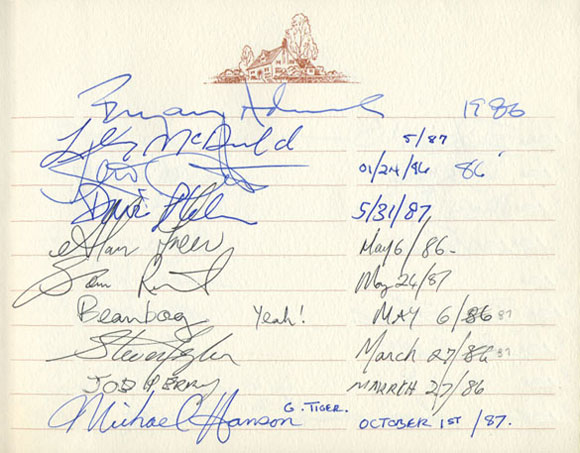 Bryan Adams 1986
McDonald 5/87
01/24/86 86'
5/31/87
Alan May 6/86-
May 24/87
Beanbag Yeah! MAY 6/86 87
Steven Tyler March 27/86 87
JOE PERRY MARRCH 27/86
Michael Hanson G. TIGER. OCTOBER 1ST /87.